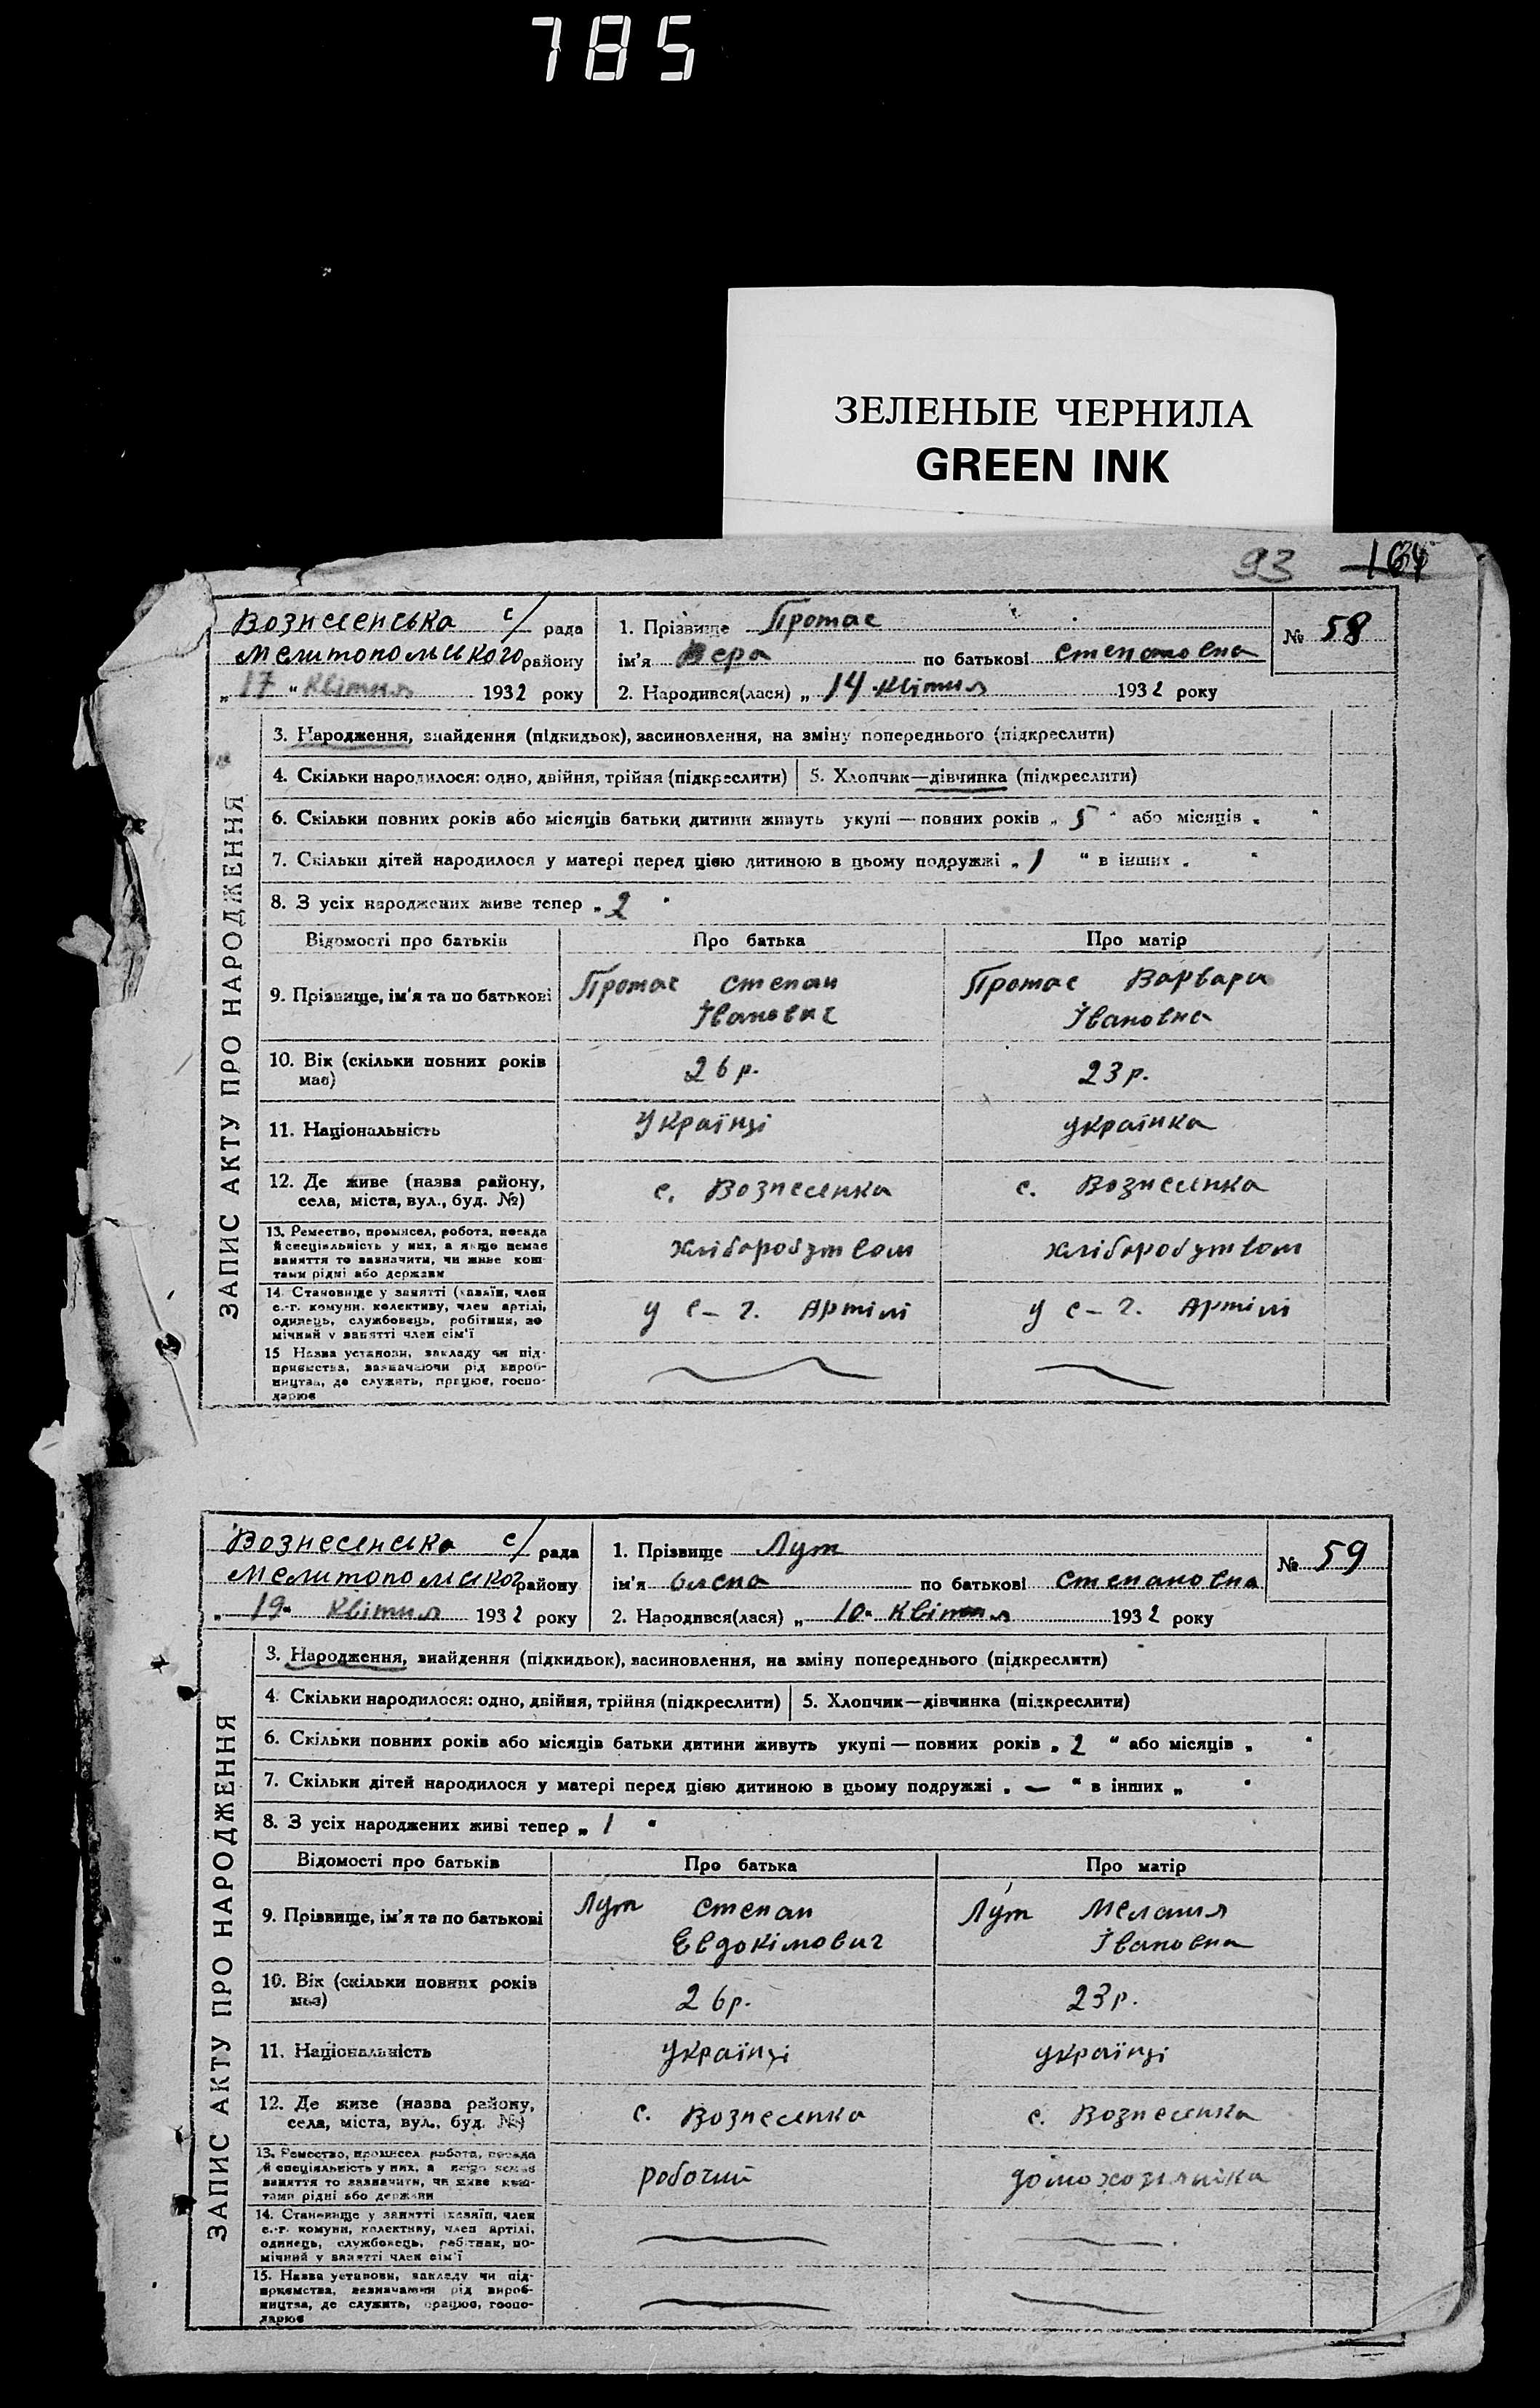 785
ЗЕЛЕНЫЕ ЧЕРНИЛА
GREEN INK
93 164
Вознесенська с/ рада
Мелитопольського району
„ 17 “ Квітня 1932 року
1. Прізвище Протас
ім'я Вера по батькові Степановна
2. Народився(лася) „ 14 Квітня 1932 року
№ 58
ЗАПИС АКТУ ПРО НАРОДЖЕННЯ
3. Народження, знайдення (підкидьок), засиновлення, на зміну попереднього (підкреслити)
4. Скільки народилося: одно, двійня, трійня (підкреслити) 5. Хлопчик—дівчинка (підкреслити)
6. Скільки повних років або місяців батьки дитини живуть укупі — повних років „ 5 “ або місяців „ “
7. Скільки дітей народилося у матері перед цією дитиною в цьому подружжі „ 1 “ в інших „ “
8. З усіх народжених живе тепер „ 2 “
Відомості про батьків Про батька Про матір
9. Прізвище, ім'я та по батькові Протас Степан Протас Варвара
Іванович Івановна
10. Вік (скільки повних років 26 р. 23 р.
має)
11. Національність Українці Українка
12. Де живе (назва району, с. Вознесенка с. Вознесенка
села, міста, вул., буд. №)
13. Ремество, промисел, робота, посада хліборобутвом хліборобутвом
й спеціяльність у них, а якщо немає
заняття то зазначити, чи живе кош-
тами рідні або держави
14. Становище у занятті (хазяїн, член у с-г. Артілі у с-г. Артілі
с.-г. комуни, колективу, член артілі,
одинець, службовець, робітник, по
мічний у занятті член сім'ї
15 Назва установи, закладу чи під-
приємства, зазначаючи рід вироб-
ництва, де служить, працює, госпо-
дарює
Вознесенська с/ рада
Мелитопольског району
„ 19 “ Квітня 1932 року
1. Прізвище Лут
ім'я Олена по батькові Степановна
2. Народився(лася) „ 10 “ Квітня 1932 року
№ 59
ЗАПИС АКТУ ПРО НАРОДЖЕННЯ
3. Народження, знайдення (підкидьок), засиновлення, на зміну попереднього (підкреслити)
4. Скільки народилося: одно, двійня, трійня (підкреслити) 5. Хлопчик—дівчинка (підкреслити)
6. Скільки повних років або місяців батьки дитини живуть укупі — повних років „ 2 “ або місяців „ “
7. Скільки дітей народилося у матері перед цією дитиною в цьому подружжі „ — “ в інших „ “
8. З усіх народжених живі тепер „ 1 “
Відомості про батьків Про батька Про матір
9. Прізвище, ім'я та по батькові Лут Степан Лут Меланя
Евдокімович Івановна
10. Вік (скільки повних років 26 р. 23 р.
має)
11. Національність українці українці
12. Де живе (назва району, с. Вознесенка с. Вознесенка
села, міста, вул., буд. №)
13. Ремество, промисел, робота, посада робочий домохозяйка
й спеціяльність у них, а якщо немає
заняття то зазначити, чи живе кош-
тами рідні або держави
14. Становище у занятті (хазяїн, член
с.-г. комуни, колективу, член артілі,
одинець, службовець, робітник, по-
мічний у занятті член сім'ї
15. Назва установи, закладу чи під-
приємства, зазначаючи рід вироб-
ництва, де служить, працює, госпо-
дарює